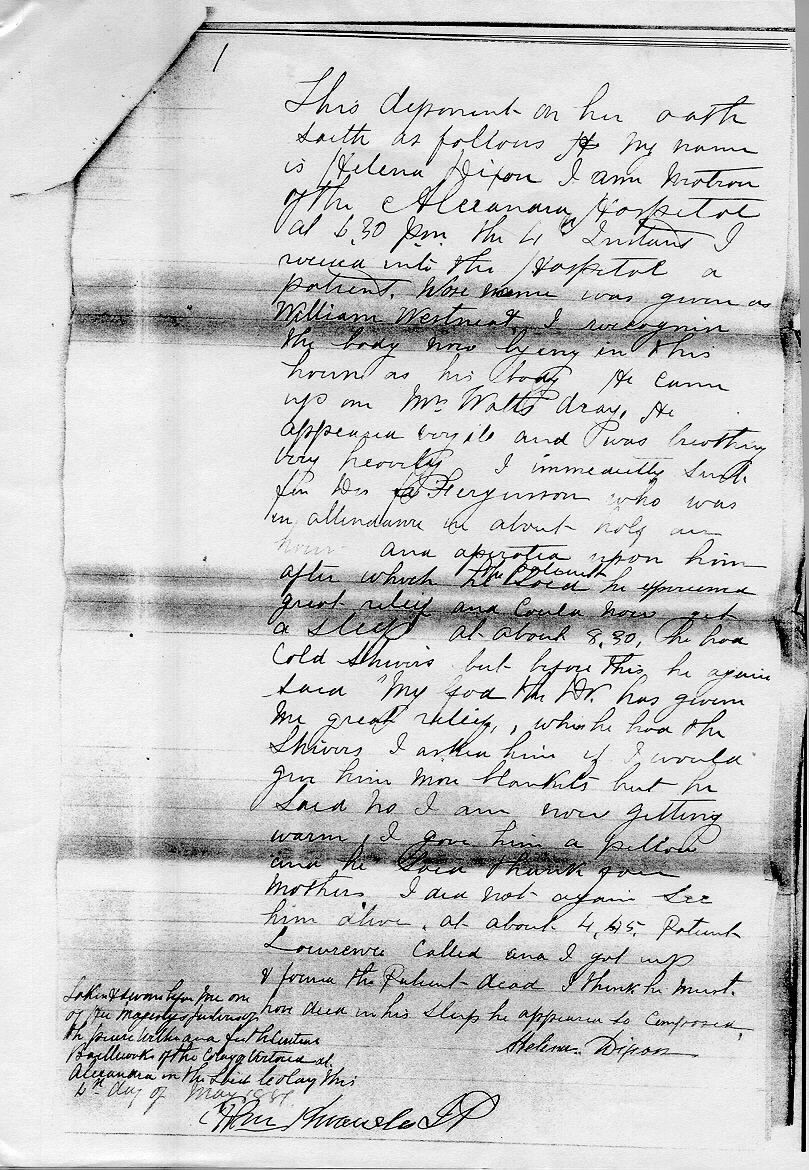 1
This deponent on her oath
saith as follows My name
is Helena Dixon I am Matron
of the Alexandra Hospital
at 6.30 pm the 4th Instant I
received into the Hospital a
patient. Whose name was given as
William Westneat. I recognize
the body now lying in this
house as his body He came
up on Mrs Watts dray. He
appeared very ill and was breathing
very heavily I immediately sent
for Dr Fergusson who was
in attendance in about half an
hour and operated upon him
after which he the patient said he experienced
great relief and could now get
a sleep at about 8.30, he had
Cold Shivers but before this he again
said "My God the Dr. has given
me great relief, when he had the
Shivers I asked him if I would
give him more blankets but he
said no I am now getting
warm, I gave him a pillow
and he said thank you
Mother. I did not again see
him alive. at about 4.45. Patient
Lawrence called and I got up
& found the Patient dead I think he must
have died in his sleep he appeared so composed.
Helena Dixon
Taken & sworn before me one
of Her Majesty's Justices of
the peace in the
Bailiwick of the Colony of Victoria at
Alexandra in the Said Colony this
day of May
JP